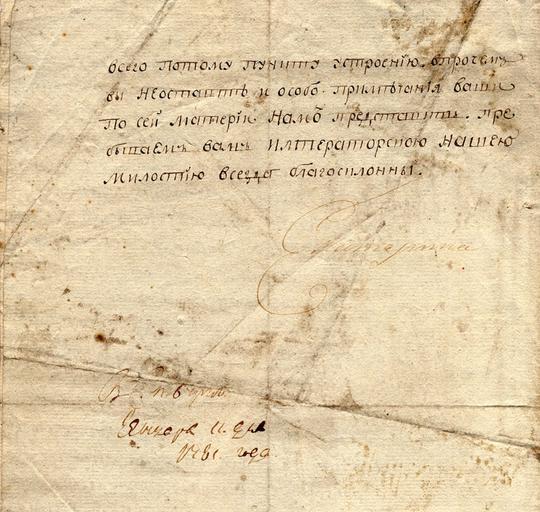 всего потому пункта устроению, впрочемъ
вы неоставитѣ и особо примѣчанія ваши
по сей матеріи намъ представить. пре
бываемъ вамъ императорскою нашею
милостію всегда благосклонны.
Екатерина
Генваря 11. дня
1781. года